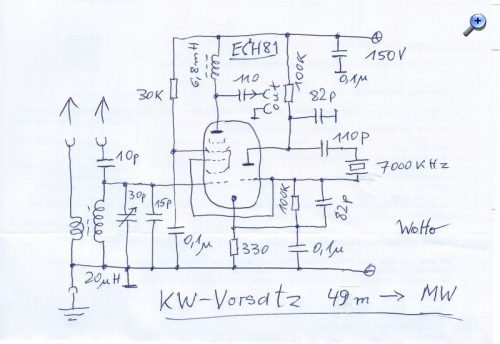 ECH81
6,8mH
110
Cout
100K
0,1µ
150V
30K
82p
110p
7000KHz
10p
30p
15p
100K
82p
0,1µ
330
0,1µ
20µH
Wolle
KW-Vorsatz 49m → MW